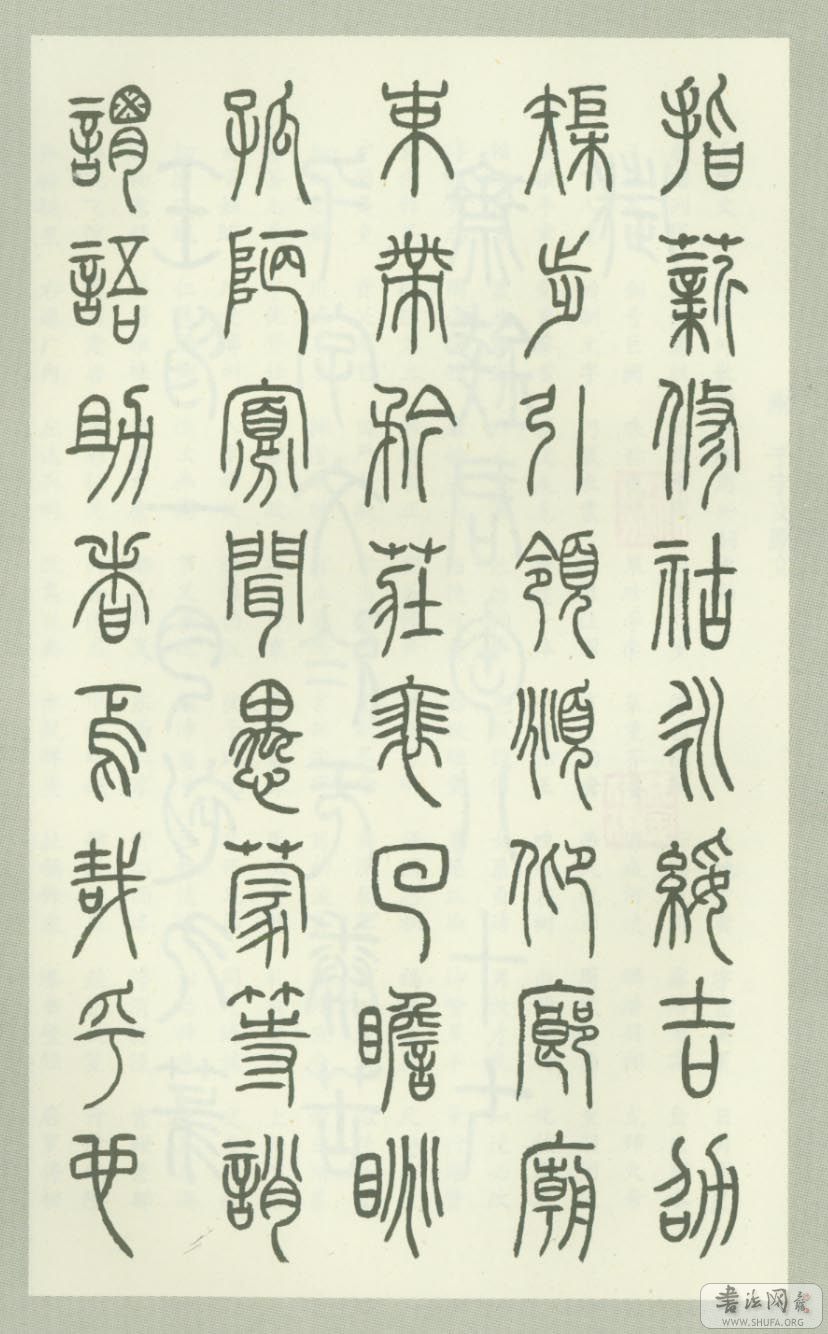 指薪修祜永綏吉劭
矩步引領頫仰廊廟
束帶矜莊裵回瞻眺
孤陋寡聞愚蒙等誚
謂語助者焉哉乎也
書法网
WWW.SHUFA.ORG